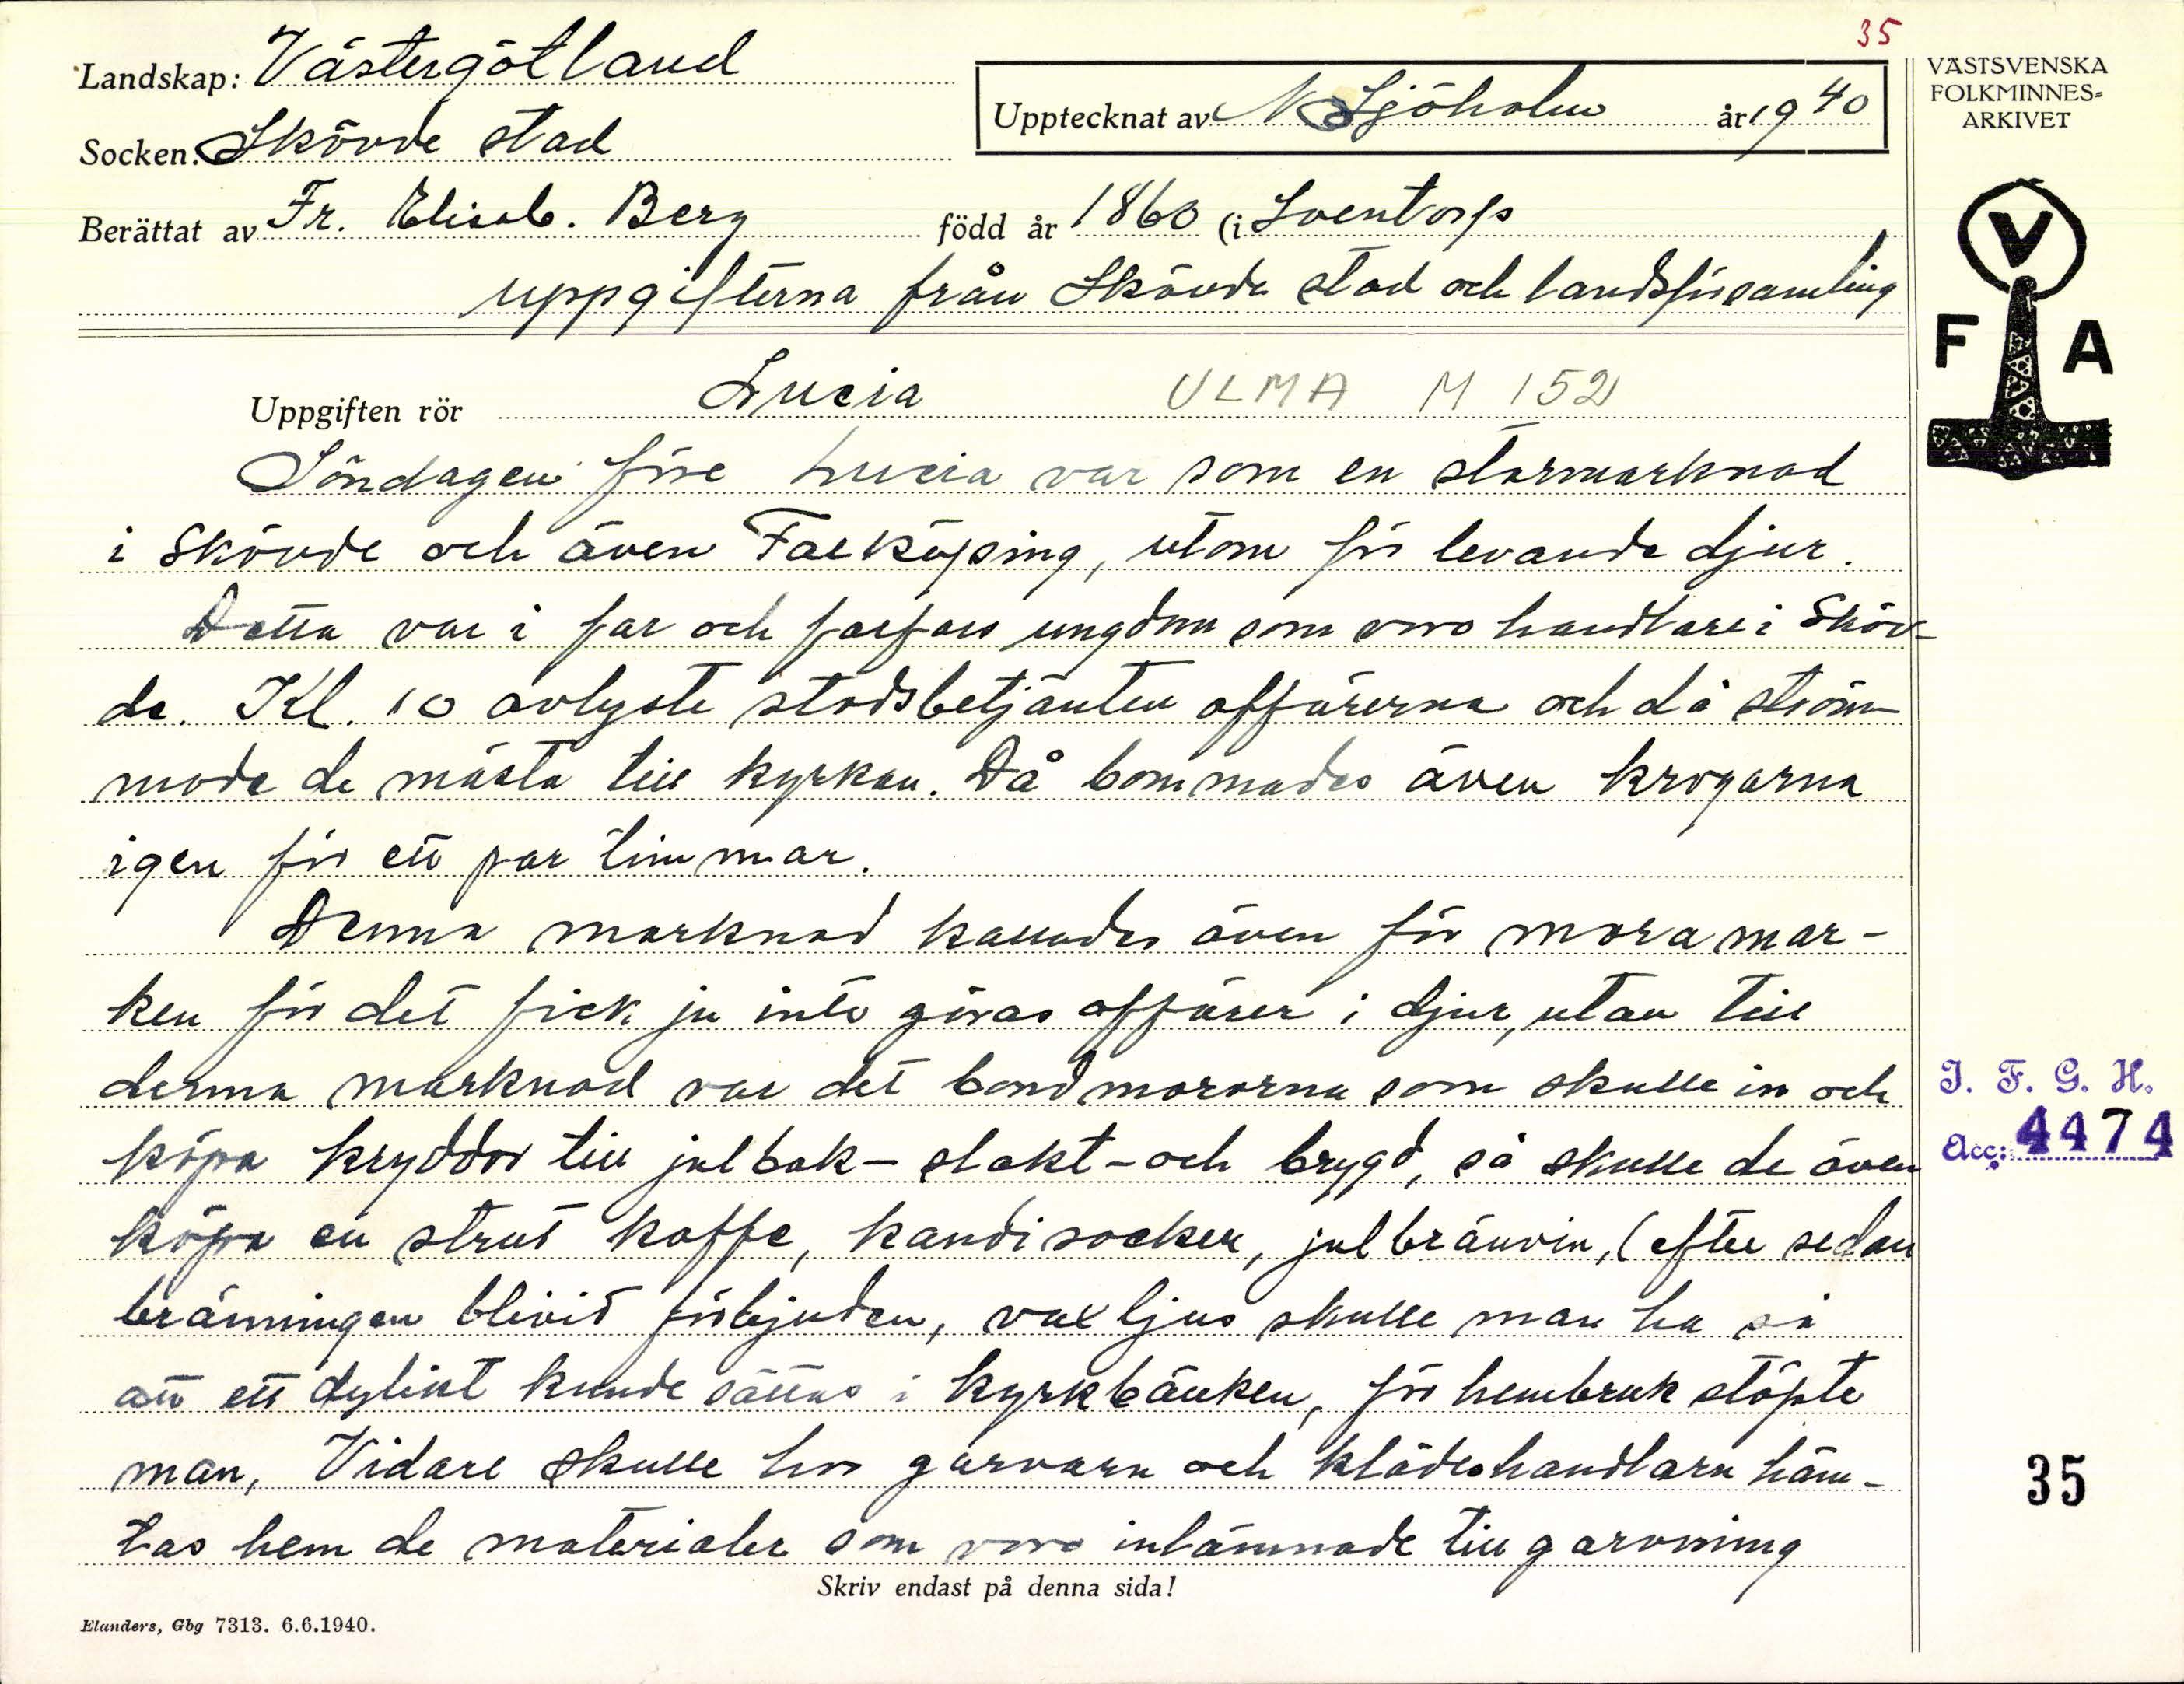 35
Landskap: Västergötland
Upptecknat av N Sjöholm år 1940
Socken: Skövde stad
Berättat av Fr. Elisab. Berg född år 1860 (i Sventorp
uppgifterna från Skövde stad och landsförsamling
Uppgiften rör Lucia ULMA M 152
Söndagen före Lucia var som en stormarknad
i Skövde och även Falköping, utom för levande djur.
Detta var i far och farfars ungdom som voro handlare i Sköv-
de. Kl. 10 avlyste stadsbetjänten affärerna och då ström-
made de mästa till kyrkan. Då bommades även krogarna
igen för ett par timmar.
Denna marknad kallades även för mora mar-
ken för det fick ju inte göras affärer i djur, utan till
denna marknad var det bondmororna som skulle in och
köpa kryddor till julbak- slakt- och brygd, så skulle de även
köpa en strut kaffe, kandisocker, julbränvin, (efter sedan
bränningen blivit förbjuden, vaxljus skulle man ha så
att ett dylikt kunde sättas i kyrkbänken, för hembruk stöpte
man, Vidare skulle hos garvarn och klädeshandlarn häm-
tas hem de materialer som voro inlämnade till garvning
Skriv endast på denna sida!
Elanders, Gbg 7313. 6.6.1940.
VÄSTSVENSKA
FOLKMINNES-
ARKIVET
V
F A
I. F. G. H.
Acc: 4474
35